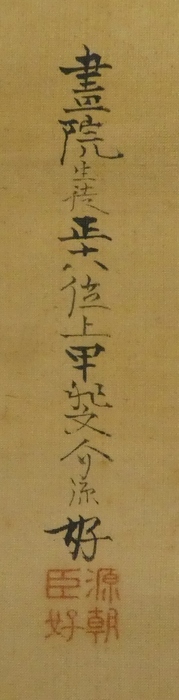 畫院生徒正六位上甲斐介源好
源朝
臣好